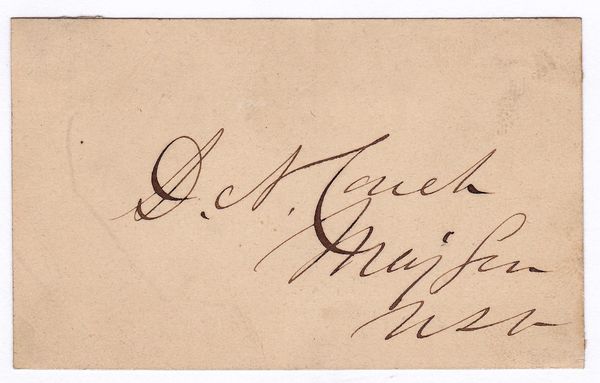 D. N. Couch
Maj Gen
USV